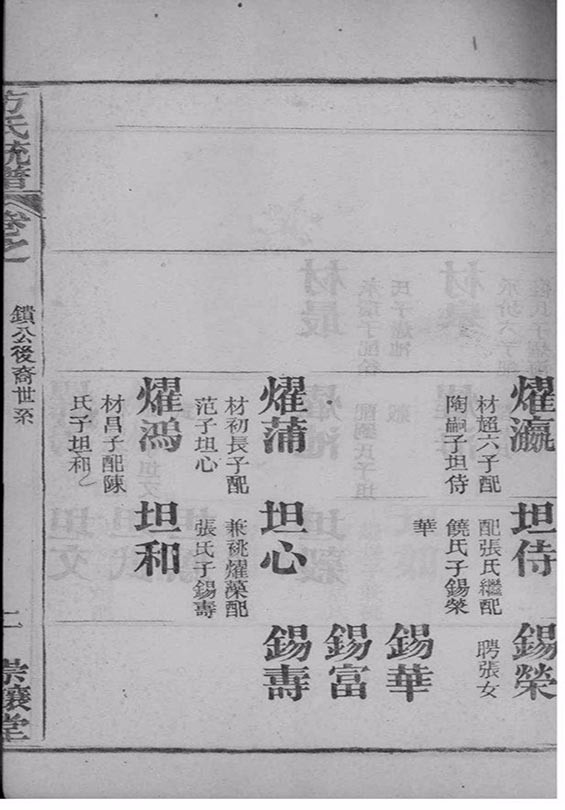 燿瀛
材超六子配
陶嗣子坦侍
坦侍
配張氏繼配
饒氏子錫榮
華
錫榮
聘張女
錫華
錫富
燿蒲
材初長子配
范子坦心
坦心
兼祧燿藻配
張氏子錫壽
錫壽
燿鴻
材昌子配陳
氏子坦和
坦和
方氏統譜
卷之
鎖公後裔世系
二
崇讓堂